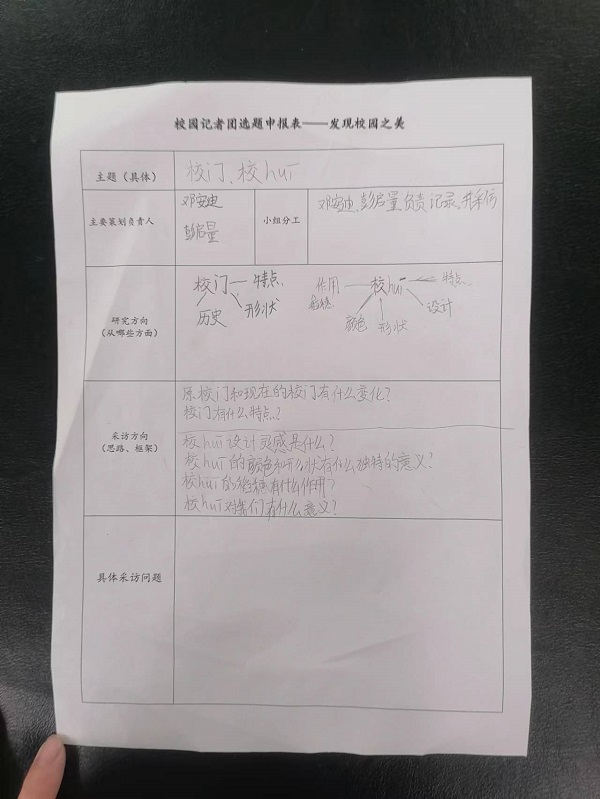 校园记者团选题申报表——发现校园之美
主题（具体）
校门、校huī
主要策划负责人
邓安迪
彭启量
小组分工
邓安迪、彭启量负责记录，并采访
研究方向
（从哪些方面）
校门 特点
历史 形状
作用 校huī 特点
颜色 形状 设计
采访方向
（思路、框架）
原校门和现在的校门有什么变化？
校门有什么特点？
校huī设计灵感是什么？
校huī的颜色和形状有什么独特的意义？
校huī的 有什么作用？
校huī对我们有什么意义？
具体采访问题